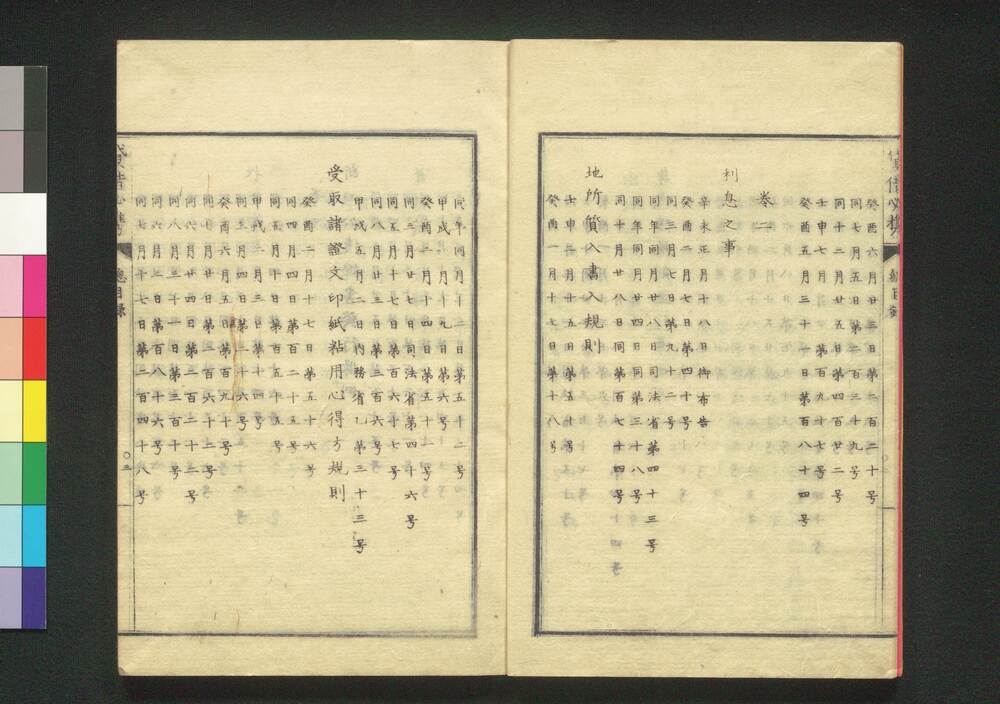 癸酉六月廿三日第二百二十号
同七月五日第二百三十九号
同十二月廿五日第四百廿二号
壬申七月 第百九十七号
癸酉五月三十一日第百八十四号
巻二
利息之事
辛未正月十八日御布告
癸酉二月七日第四十号
同三月七日第九十二号
同年同月廿八日司法省第四十三号
同年同月廿四日同第三十八号
同十月廿八日同第百七十四号
地所質入書入規則
壬申二月十五日第五十号
癸酉一月十七日第十八号
同年同月十二日第五十二号
甲戌一月十九日第六号
癸酉二月十四日第五十一号
同三月廿七日司法省第四十六号
同五月十七日第百六十七号
同八月廿三日第三百六号
甲戌五月二日内務省乙第三十三号
受取諸證文印紙粘用心得方規則
癸酉二月十七日第五十六号
同四月四日第百二十五号
同五月十日第百五十五号
甲戌二月三日第十四号
同三月四日第二十六号
癸酉六月五日第百九十号
同七月廿日第二百六十二号
同六月廿四日第二百二十二号
同八月三十一日第三百十号
同六月 第百八十六号
同七月十七日第二百四十八号
總目録
〇三